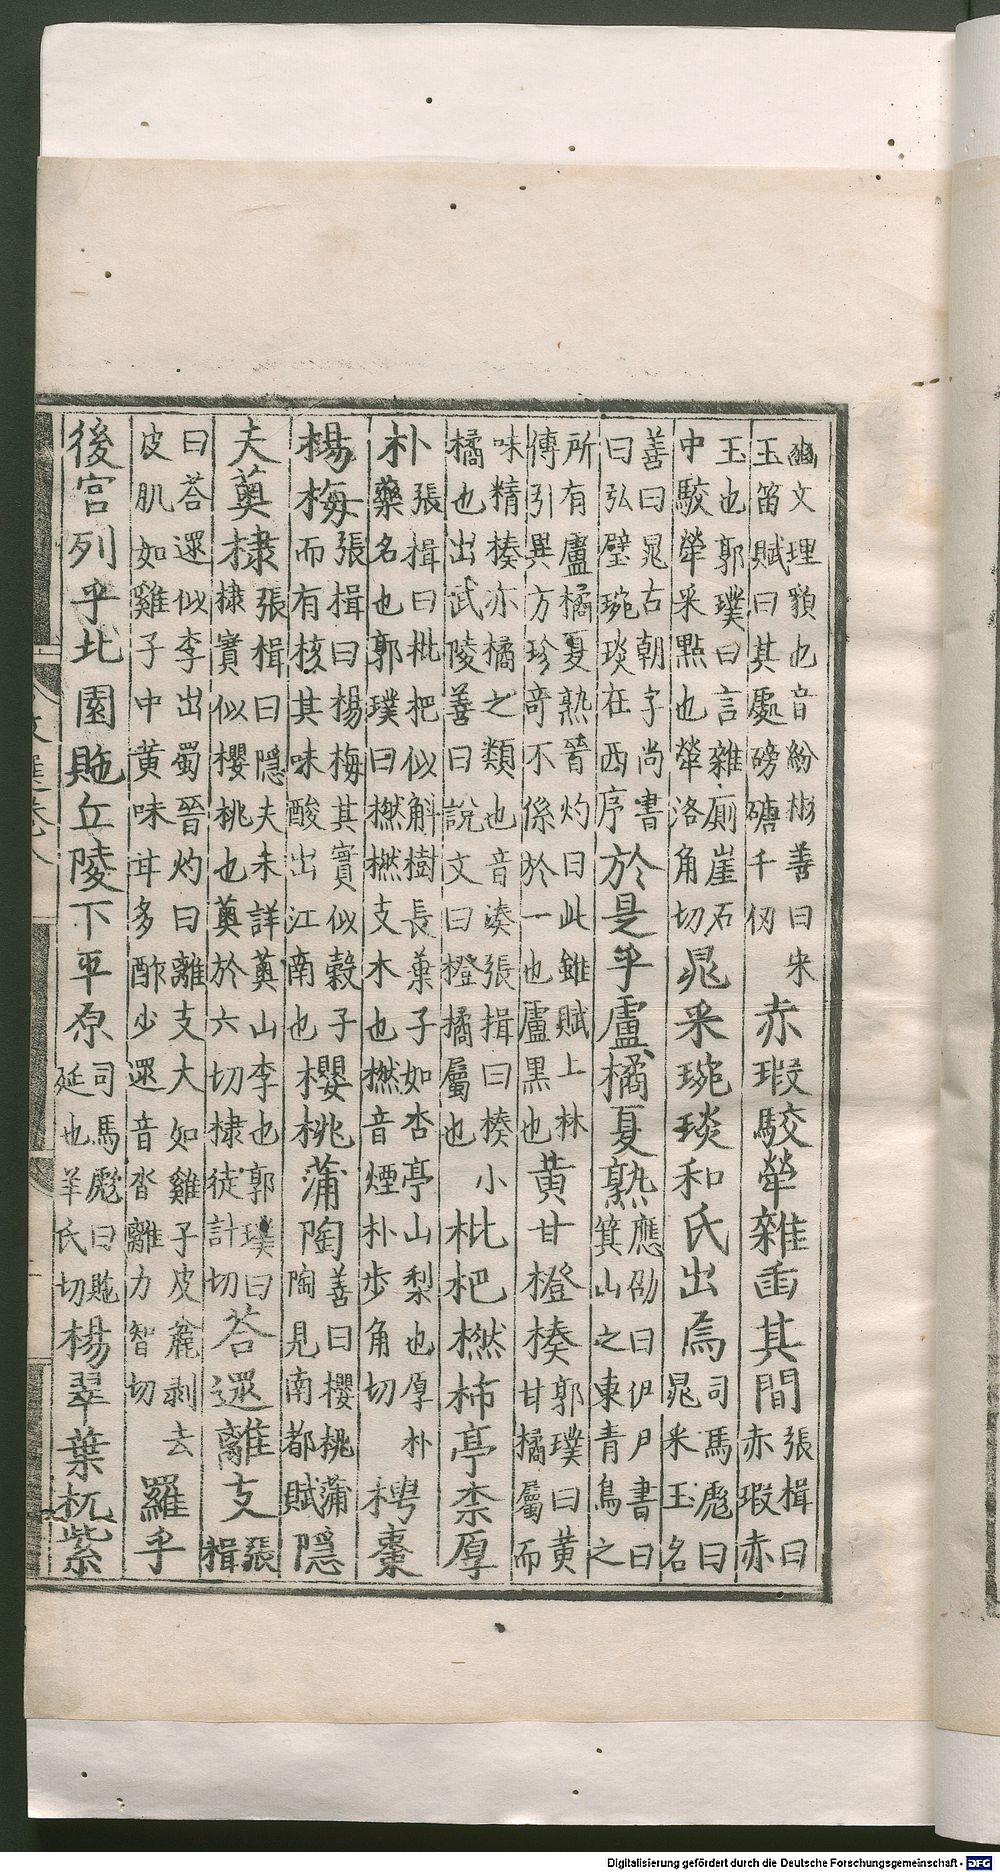 豳文理貌也音紛彬善曰宋
玉笛賦曰其處磅磄千仞
赤瑕駮犖雜臿其間
張揖曰
赤瑕赤
玉也郭璞曰言雜廁崖石
中駮犖采點也犖洛角切
晁采琬琰和氏出焉
司馬彪曰
晁采玉名
善曰晁古朝字尚書
曰弘璧琬琰在西序
於是乎盧橘夏熟
應劭曰伊尹書曰
箕山之東青鳥之
所有盧橘夏熟晉灼曰此雖賦上林
傳引異方珍奇不係於一也盧黑也
黃甘橙楱
郭璞曰黃
甘橘屬而
味精楱亦橘之類也音湊張揖曰楱小
橘也出武陵善曰說文曰橙橘屬也
枇杷橪柿亭柰厚
朴
張揖曰枇杷似斛樹長葉子如杏亭山梨也厚朴
藥名也郭璞曰橪橪支木也橪音煙朴步角切
梬棗
楊梅
張揖曰楊梅其實似穀子
而有核其味酸出江南也
櫻桃蒲陶
善曰櫻桃蒲
陶見南都賦
隱
夫薁棣
張揖曰隱夫未詳薁山李也郭璞曰
棣實似櫻桃也薁於六切棣徒計切
荅遝離支
張
揖
曰荅遝似李出蜀晉灼曰離支大如雞子皮麄剥去
皮肌如雞子中黃味甘多酢少遝音沓離力智切
羅乎
後宮列乎北園貤丘陵下平原
司馬彪曰貤
延也羊氏切
楊翠葉杌紫
文選卷八
Digitalisierung gefördert durch die Deutsche Forschungsgemeinschaft - DFG